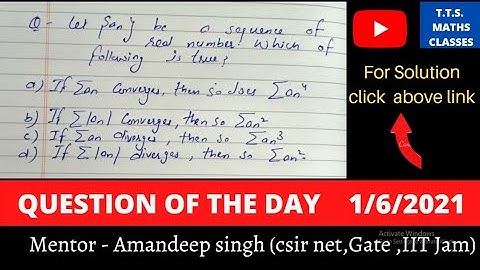 Q - Let {an} be a sequence of
real number. Which of
following is true?
a) If Σan Converges, then so does Σan⁴
b) If Σ|an| Converges, then so Σan²
c) If Σan diverges, then so Σan³
d) If Σ|an| diverges, then so Σan².
T.T.S.
MATHS
CLASSES
For Solution
click above link
Activate Windows
QUESTION OF THE DAY 1/6/2021
Mentor - Amandeep singh (csir net,Gate ,IIT Jam)